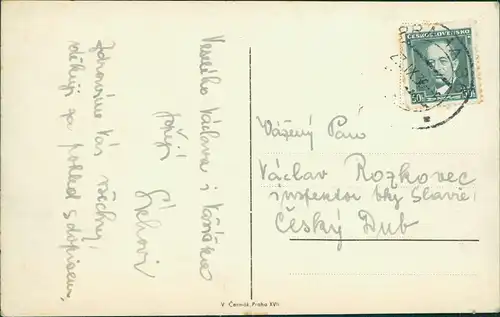 Veselého Václava i Vašíčka
přejí
Síchovi
Zdravíme Vás všechny
děkuji za pohled s dopisem,
ČESKOSLOVENSKO
50h
Vážený Pan
Václav Rozkovec
inspektor bky Slavie
Český Dub
V. Čermák, Praha XVII